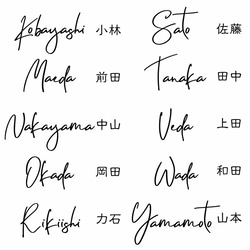 Kobayashi 小林 Sato 佐藤
Maeda 前田 Tanaka 田中
Nakayama 中山 Ueda 上田
Okada 岡田 Wada 和田
Rikiishi 力石 Yamamoto 山本